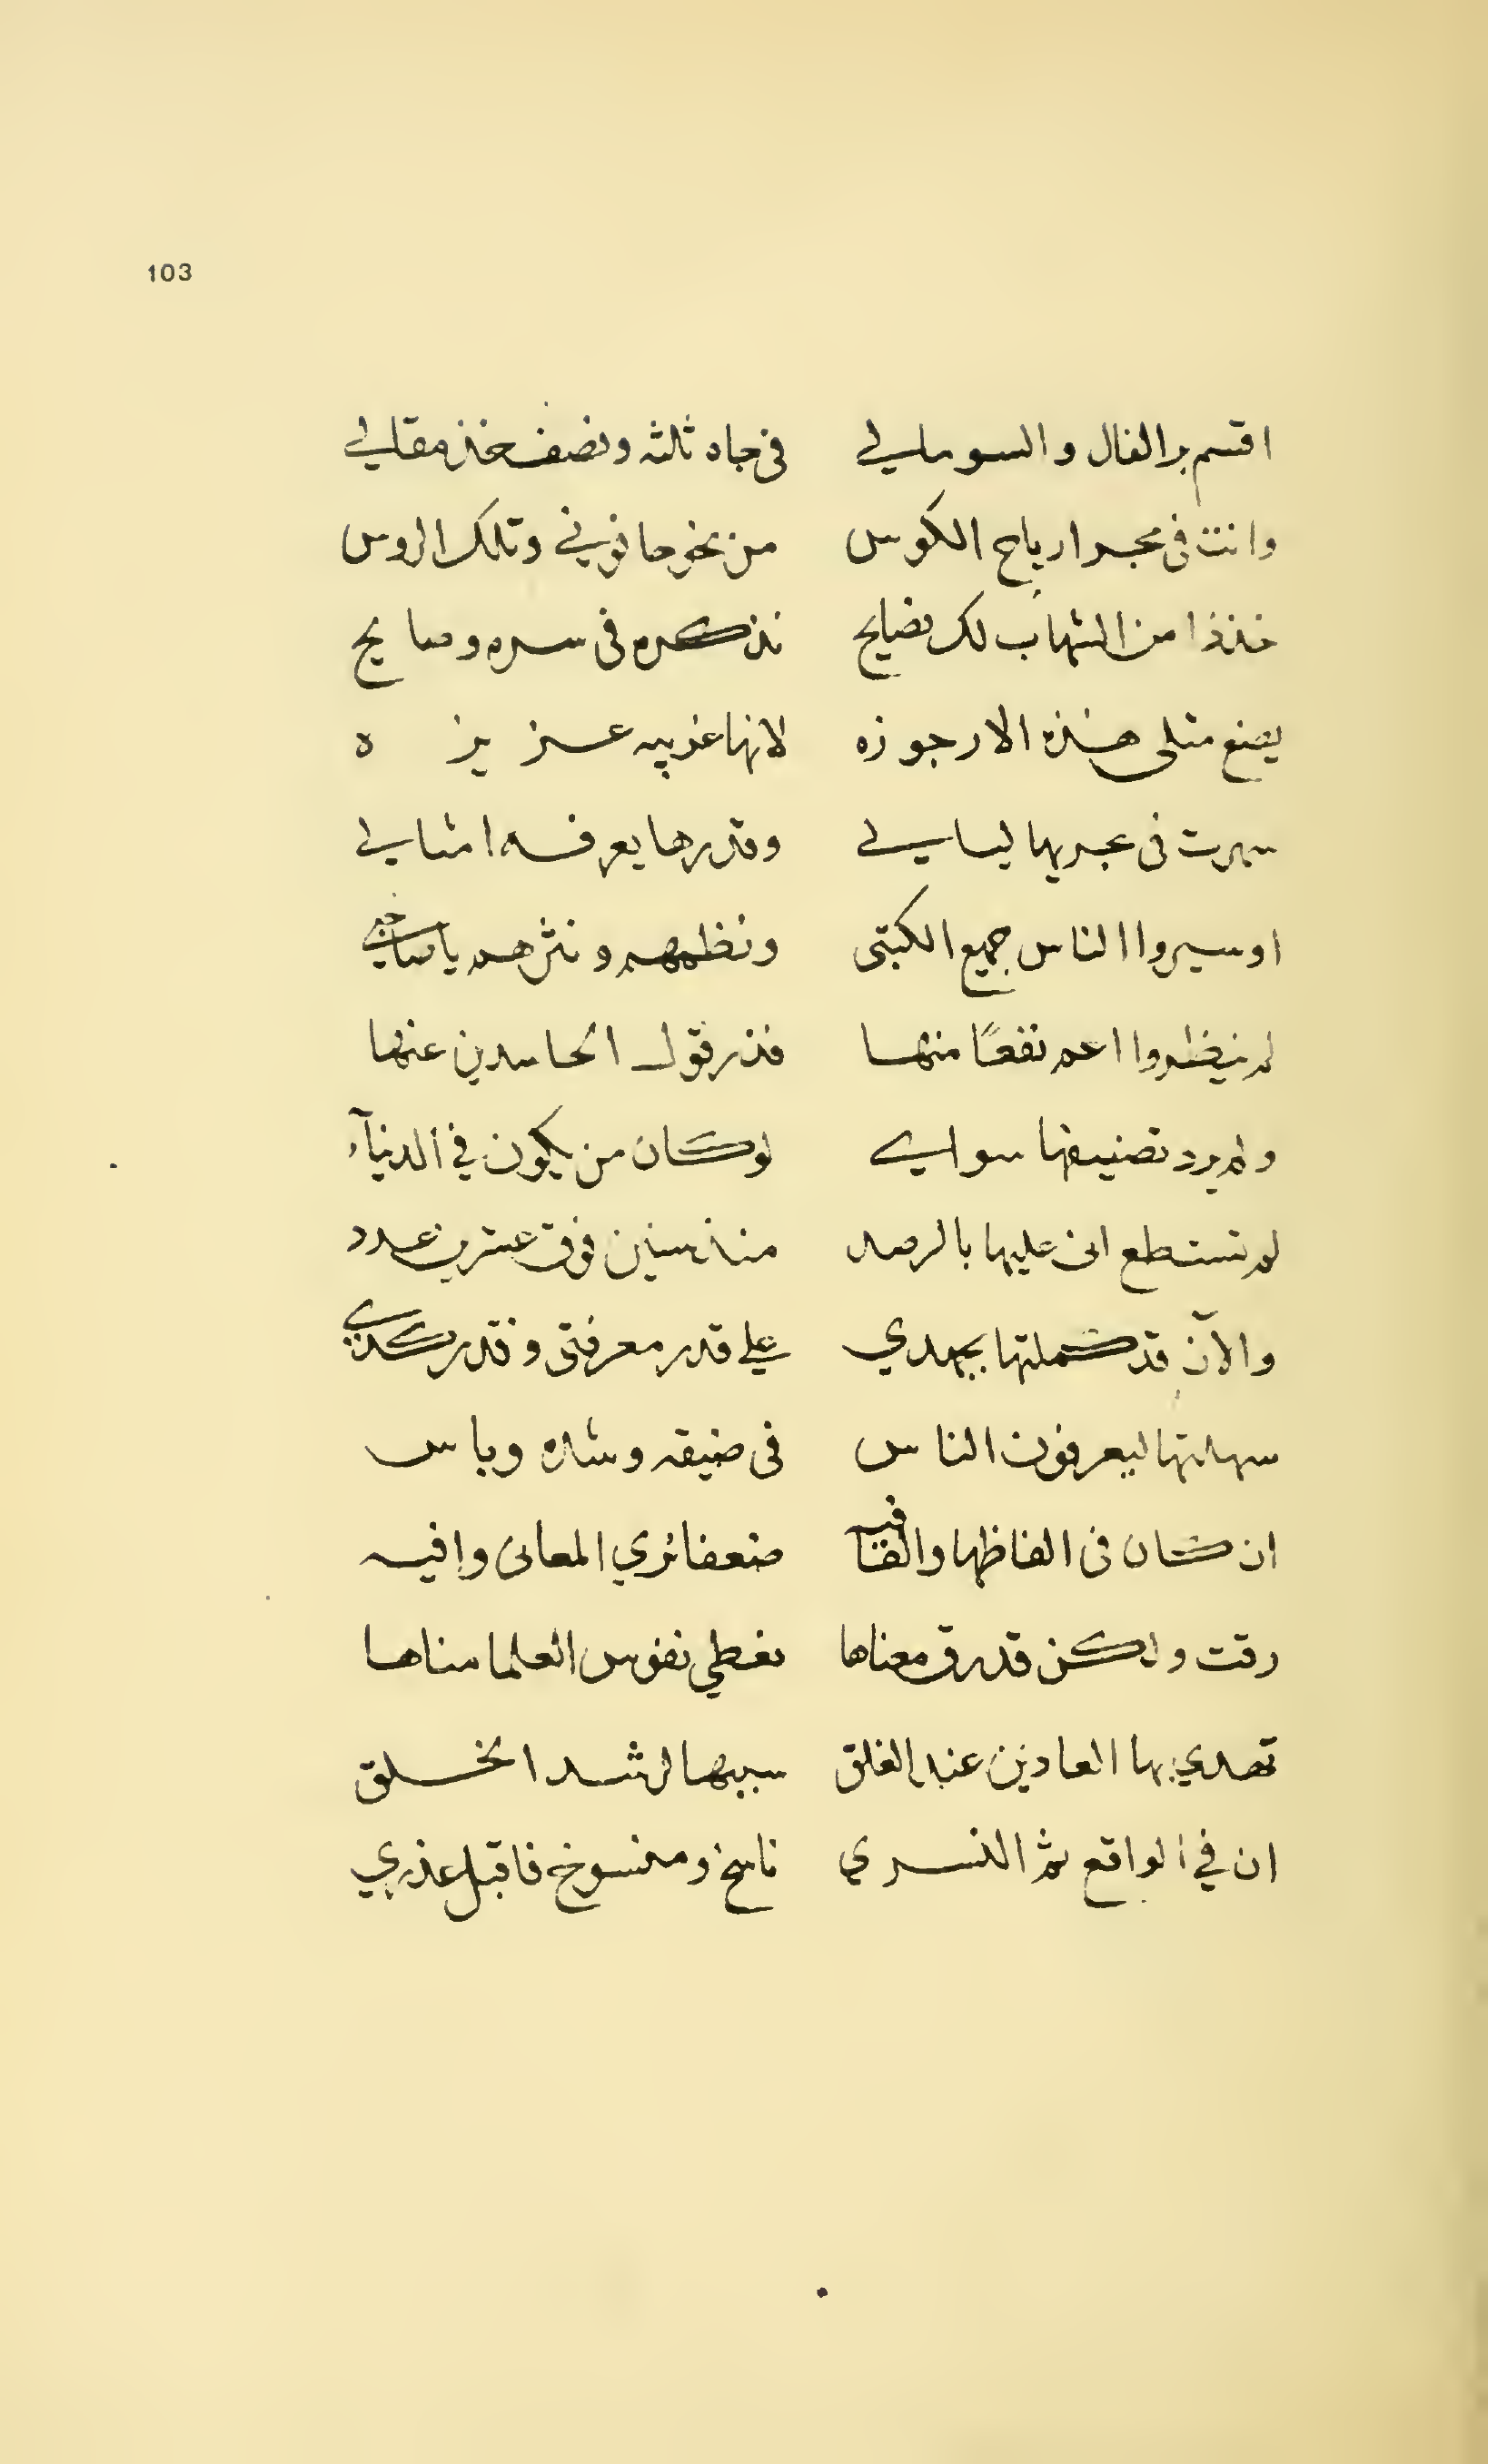 103
اقسم بر الفال والسومالي في جاه ثالثه ونصف فخذ مقالي
وانت في مجرا رياح الكوس من نحو حافوني وتلك الروس
خذذا من الشهاب لك نصايح تذكره في سره وصايح
يصنع مثلي هذه الارجوزه لانها غريبه عزيزه
سهرت في لياالي وقدرها يعرفه امثالي
او سيروا الناس جميع الكتبي ونظمهم ونثرهم يا صاحبي
لم ينظروا اعم نفعًا منها فذر قول الحاسدين عنها
ولم يرد تصنيفها سواي لو كان من يكون في الدنيآء
لم تستطع اني عليها بالرصد منذ سنين فوق عشرين عدد
والآن قد كملتها بجهدي على قدر معرفتي وقدر كدي
سهلتها ليعرفون الناس في ضيقه وشده وباس
ان كان في الفاظها والقافيه ضعفا تري المعاني وافيه
رقت ولكن قد رق معناها تعطي نفوس العلما مناها
تهدي بها العادين عند الغلق سببها لرشد الخلق
ان في الواقع ثم النسري ناسخ ومنسوخ فاقبل عذري